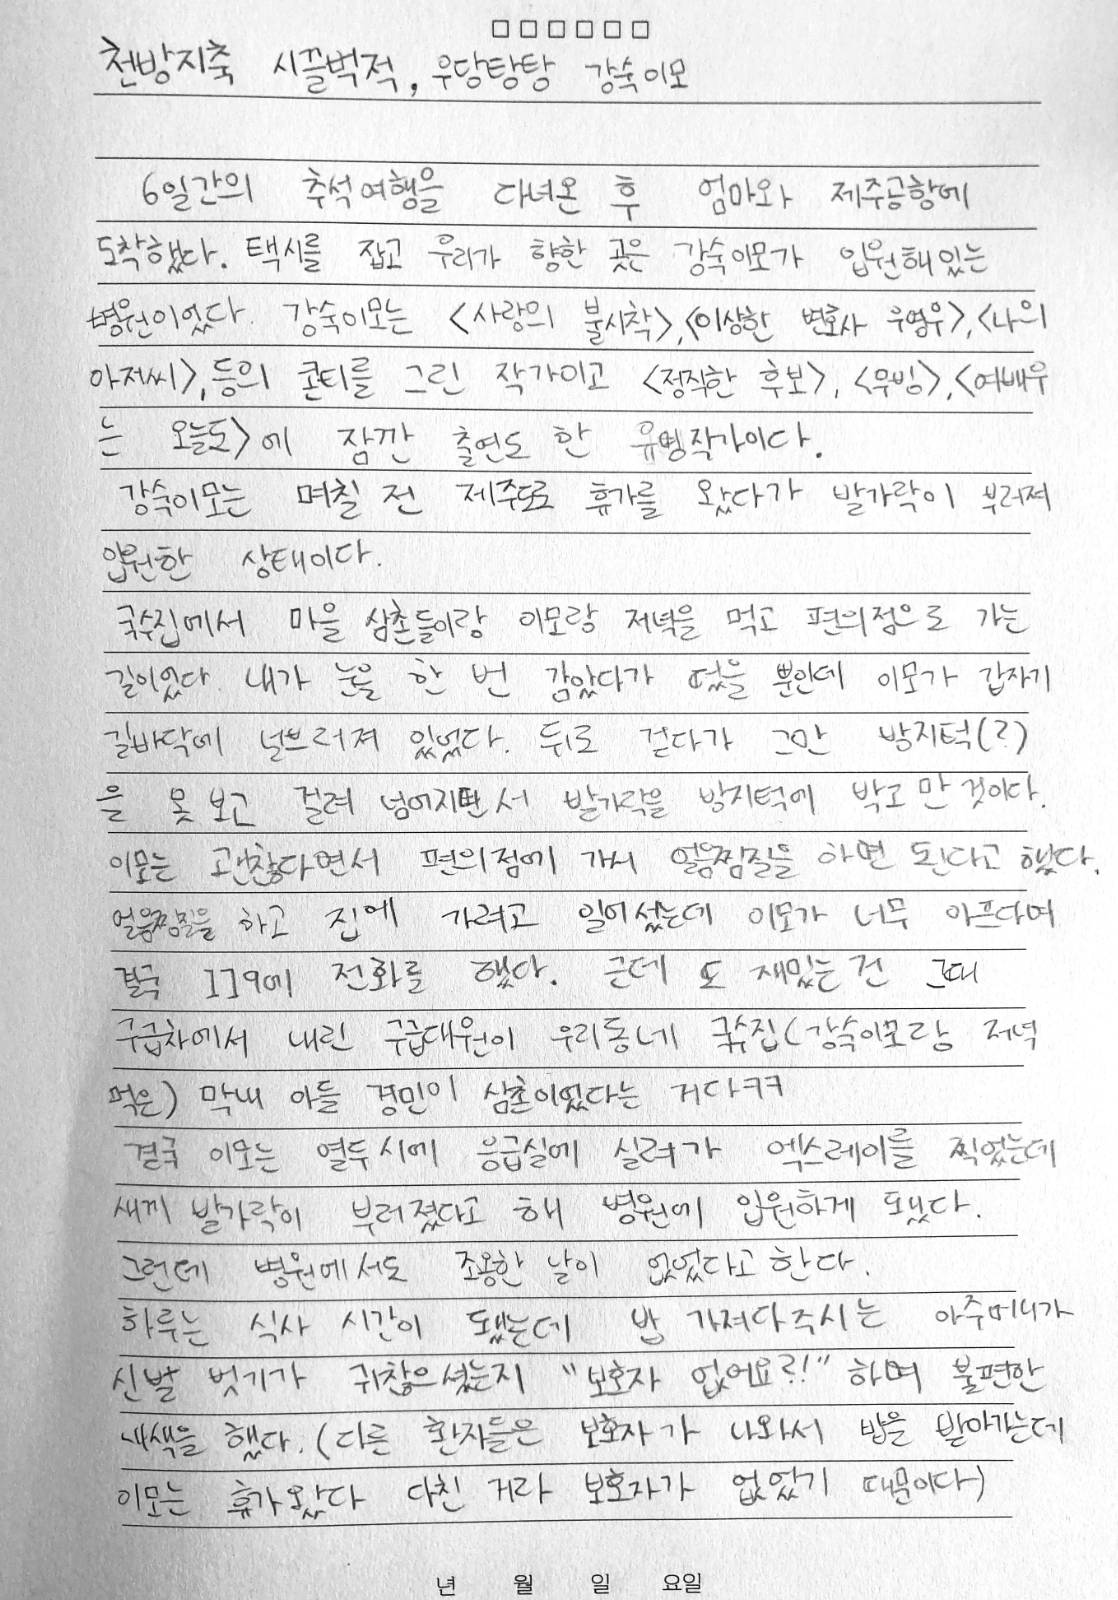 천방지축 시끌벅적, 우당탕탕 강숙이모
6일간의 추석여행을 다녀온 후 엄마와 제주공항에
도착했다. 택시를 잡고 우리가 향한 곳은 강숙이모가 입원해있는
병원이었다. 강숙이모는 <사랑의 불시착>,<이상한 변호사 우영우>,<나의
아저씨>,등의 콘티를 그린 작가이고 <정직한 후보>, <무빙>,<여배우
는 오늘도>에 잠깐 출연도 한 유명작가이다.
강숙이모는 며칠 전 제주도로 휴가를 왔다가 발가락이 부러져
입원한 상태이다.
국수집에서 마을 삼촌들이랑 이모랑 저녁을 먹고 편의점으로 가는
길이었다. 내가 눈을 한 번 감았다가 떴을 뿐인데 이모가 갑자기
길바닥에 널브러져 있었다. 뒤로 걷다가 그만 방지턱(?)
을 못 보고 걸려 넘어지면서 발가락을 방지턱에 박고 만 것이다.
이모는 괜찮다면서 편의점에 가서 얼음찜질을 하면 된다고 했다.
얼음찜질을 하고 집에 가려고 일어섰는데 이모가 너무 아프다며
결국 119에 전화를 했다. 근데 또 재밌는 건 그때
구급차에서 내린 구급대원이 우리동네 국수집(강숙이모랑 저녁
먹은) 막내 아들 경민이 삼촌이었다는 거다ㅋㅋ
결국 이모는 열두시에 응급실에 실려가 엑스레이를 찍었는데
새끼 발가락이 부러졌다고 해 병원에 입원하게 됐다.
그런데 병원에서도 조용한 날이 없었다고 한다.
하루는 식사 시간이 됐는데 밥 가져다주시는 아주머니가
신발 벗기가 귀찮으셨는지 "보호자 없어요?!" 하며 불편한
내색을 했다.(다른 환자들은 보호자가 나와서 밥을 받아가는데
이모는 휴가왔다 다친 거라 보호자가 없었기 때문이다)
년 월 일 요일